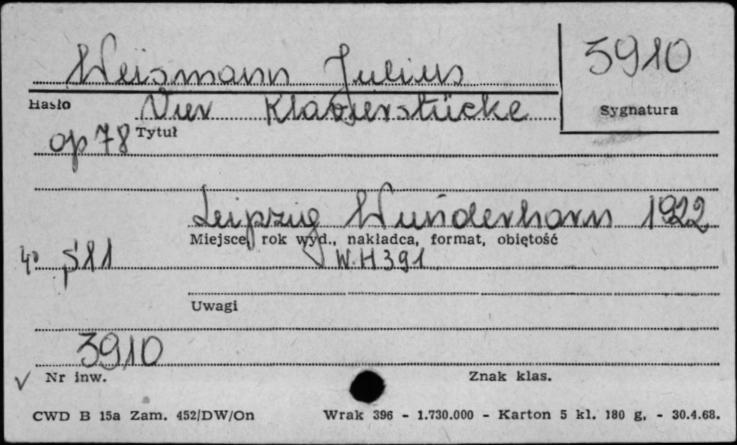 Weismann Julius 3910
Hasło Vier Klavierstücke Sygnatura
op 78 Tytuł
Leipzig Wunderhorn 1922
Miejsce, rok wyd., nakładca, format, obiętość
4° s 11 W.H 391
Uwagi
3910
√ Nr inw. Znak klas.
CWD B 15a Zam. 452/DW/On Wrak 396 - 1.730.000 - Karton 5 kl. 180 g, - 30.4.68.